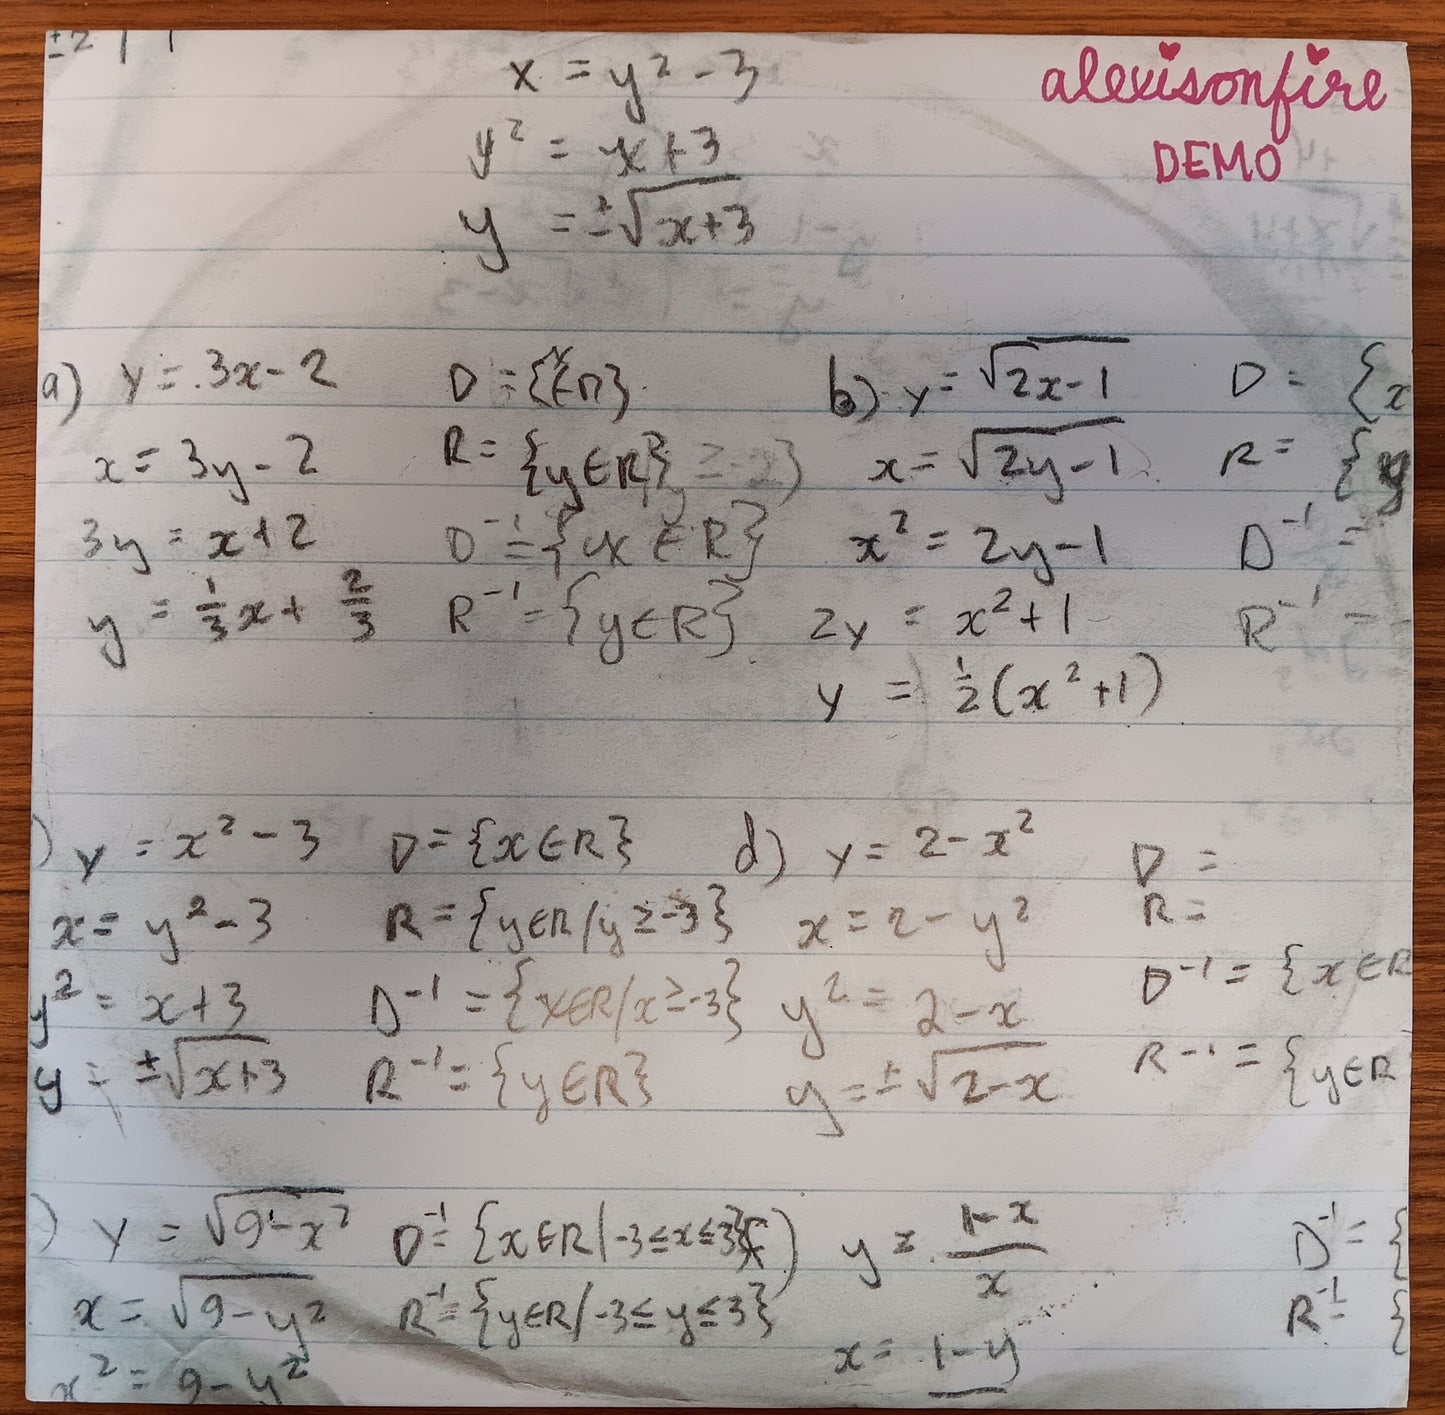 ±2
x = y² - 3
y² = x + 3
y = ±√x+3
alexisonfire
DEMO
a) y = 3x - 2
x = 3y - 2
3y = x + 2
y = 1/3 x + 2/3
D = {x∈R}
R = {y∈R}
D⁻¹ = {x∈R}
R⁻¹ = {y∈R}
b) y = √2x-1
x = √2y-1
x² = 2y - 1
2y = x² + 1
y = 1/2 (x² + 1)
D = {x
R = {y
D⁻¹ =
R⁻¹ =
) y = x² - 3
x = y² - 3
y² = x + 3
y = ±√x+3
D = {x∈R}
R = {y∈R/y ≥ -3}
D⁻¹ = {x∈R/x ≥ -3}
R⁻¹ = {y∈R}
d) y = 2 - x²
x = 2 - y²
y² = 2 - x
y = ±√2-x
D =
R =
D⁻¹ = {x∈R
R⁻¹ = {y∈R
) y = √9-x²
x = √9-y²
x² = 9 - y²
D⁻¹ = {x∈R/-3 ≤ x ≤ 3}
R⁻¹ = {y∈R/-3 ≤ y ≤ 3}
f) y = 1-x/x
x = 1-y
D⁻¹ = {
R⁻¹ = {